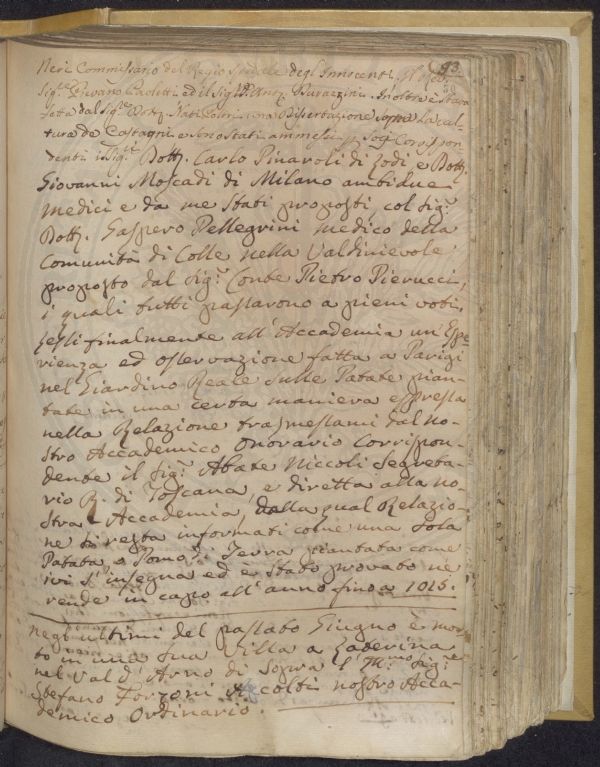 93.
Neri Commissario del Regio Spedale degl'Innocenti, il
Sig.e Piovano Paoletti ed il Sig.e Ant. Durazzini. Inoltre è stata
letta dal Sig.e Dott. una Dissertazione sopra la cul-
tura de Castagni e sono stati ammessi p Soci Corrispon
denti i Sig.ri Dott. Carlo Pinaroli di Lodi e Dott.
Giovanni Moscadi di Milano ambidue
Medici e da me stati proposti, col Sig.r
Dott. Gaspero Pellegrini medico della
Comunità di Colle nella Valdinievole
proposto dal Sig.r Conte Pietro Pierucci,
i quali tutti passarono a pieni voti,
Lessi finalmente all'Accademia un'Espe
rienza ed osservazione fatta a Parigi
nel Giardino Reale sulle Patate pian-
tate in una certa maniera espressa
nella Relazione trasmessami dal no-
stro Accademico Onorario Corrispon-
dente il Sig.r Abate Niccoli Segreta-
rio R. di Toscana, e diretta alla no-
stra Accademia, dalla qual Relazio-
ne si resta informati come una sola
Patata, o Pomo di Terra piantata come
ivi s'insegna ed è stato provato ne
rende in capo all'anno fino a 1015.
Negl'ultimi del passato Giugno è mor-
to in una sua Villa a Gaterina
nel Val d'Arno di Sopra l'Ill.mo Sig.re
Stefano Forzoni Accolti nostro Acca-
demico Ordinario.